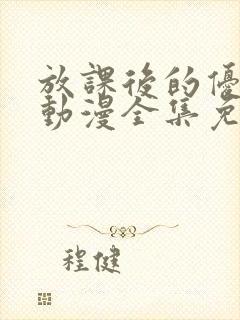 放課後的優
動漫全集免
程健